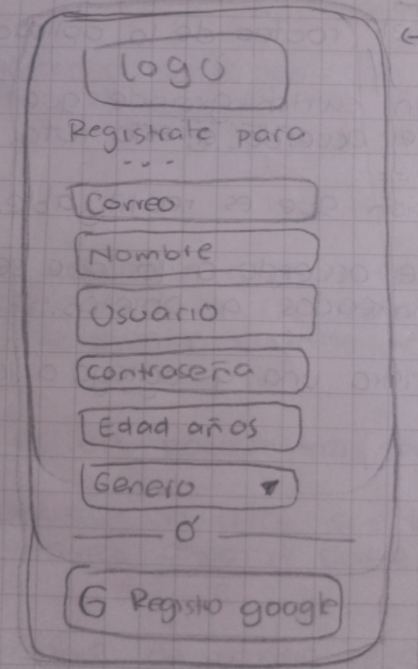 logo
Registrate para
...
Correo
Nombre
Usuario
contraseña
Edad años
Genero
O
G Registro google